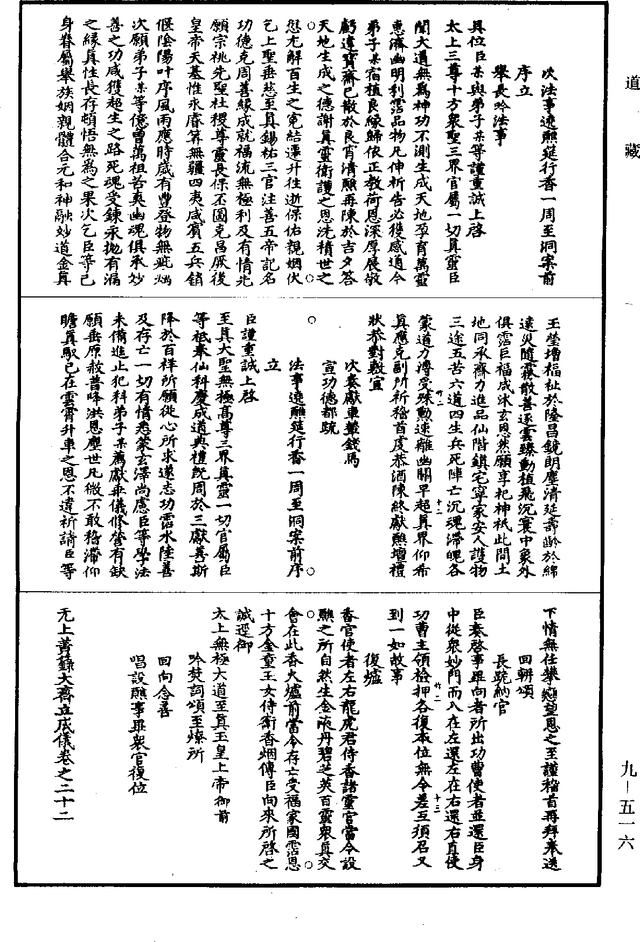 道藏
次法事遶醮筵行香一周至洞案前
序立
舉長吟法事
具位臣某與弟子某等謹重誠上啓
太上三尊十方衆聖三界官屬一切真靈臣
聞大道無爲神功不測生成天地孕育萬靈
惠濟幽明利霑品物凡伸祈告必獲感通今
弟子某宿植良緣歸依正教荷恩深厚展敬
虧違寶齋已散於良宵清醮再陳於吉夕答
天地生成之德謝真靈衛護之恩洗積世之
愆尤解百生之冤結遷升往逝保佑親姻伏
乞上聖垂慈至真錫祐三官注善五帝記名
功德克周善緣成就福流無極利及有情先
願宗祧先聖社稷尊靈長保丕圖克昌厥後
皇帝天基性永睿筭無疆四夷咸賓五兵銷
偃陰陽叶序風雨應時歲有豐登物無疵癘
次願弟子某等億曾萬祖苦爽幽魂俱承妙
善之功咸獲超生之路死魂受鍊承拋有漏
之緣真性長存頓悟無爲之果次乞臣等己
身眷屬舉族姻親體合元和神融妙道金真
玉瑩增福祉於隆昌鏡朗塵清延壽齡於綿
遠災隨霧散善逐雲臻動植飛沉寰中象外
俱霑巨福咸沐玄恩然願享祀神祇此間土
地同承齋力進品仙階鎮宅寧家安人護物
三途五苦六道四生兵死陣亡沉魂滯魄各
蒙道力溥受殊勳速離幽關早超真界仰希
真應克副所祈稽首虔恭酒陳終獻醮壇禮
狀恭對敷宣
次奏獻車輦錢馬
宣功德都疏
法事遶醮筵行香一周至洞案前序
立
臣謹重誠上啓
至真大聖無極高尊三界真靈一切官屬臣
等祗奉仙科慶成道典禮既周於三獻真斯
降於百祥所願從心所求遂志功霑水陸善
及存亡一切有情悉蒙玄澤尚慮臣等學法
未備進止犯科弟子某薦獻乖儀修營有缺
願垂原赦普降洪恩塵世凡微不敢稽滯仰
瞻真馭已在雲霄升車之恩不遑祈請臣等
下情無任攀戀望恩之至謹稽首再拜奉送
回軿頌
長跪納官
臣奏啓事畢向者所出功曹使者並還臣身
中從衆妙門而入在左還左在右還右直使
功曹主領檢押各復本位無令差互須召又
到一如故事
復爐
香官使者左右龍虎君侍香諸靈官當令設
醮之所自然生金液丹碧芝英百靈衆真交
會在此香火爐前當令存亡受福家國霑恩
十方金童玉女侍衛香烟傳臣向來所啓之
誠逕御
太上無極大道至真玉皇上帝御前
吟梵詞頌至燎所
回向念善
唱設醮事畢衆官復位
无上黃籙大齋立成儀卷之二十二
九一五一六